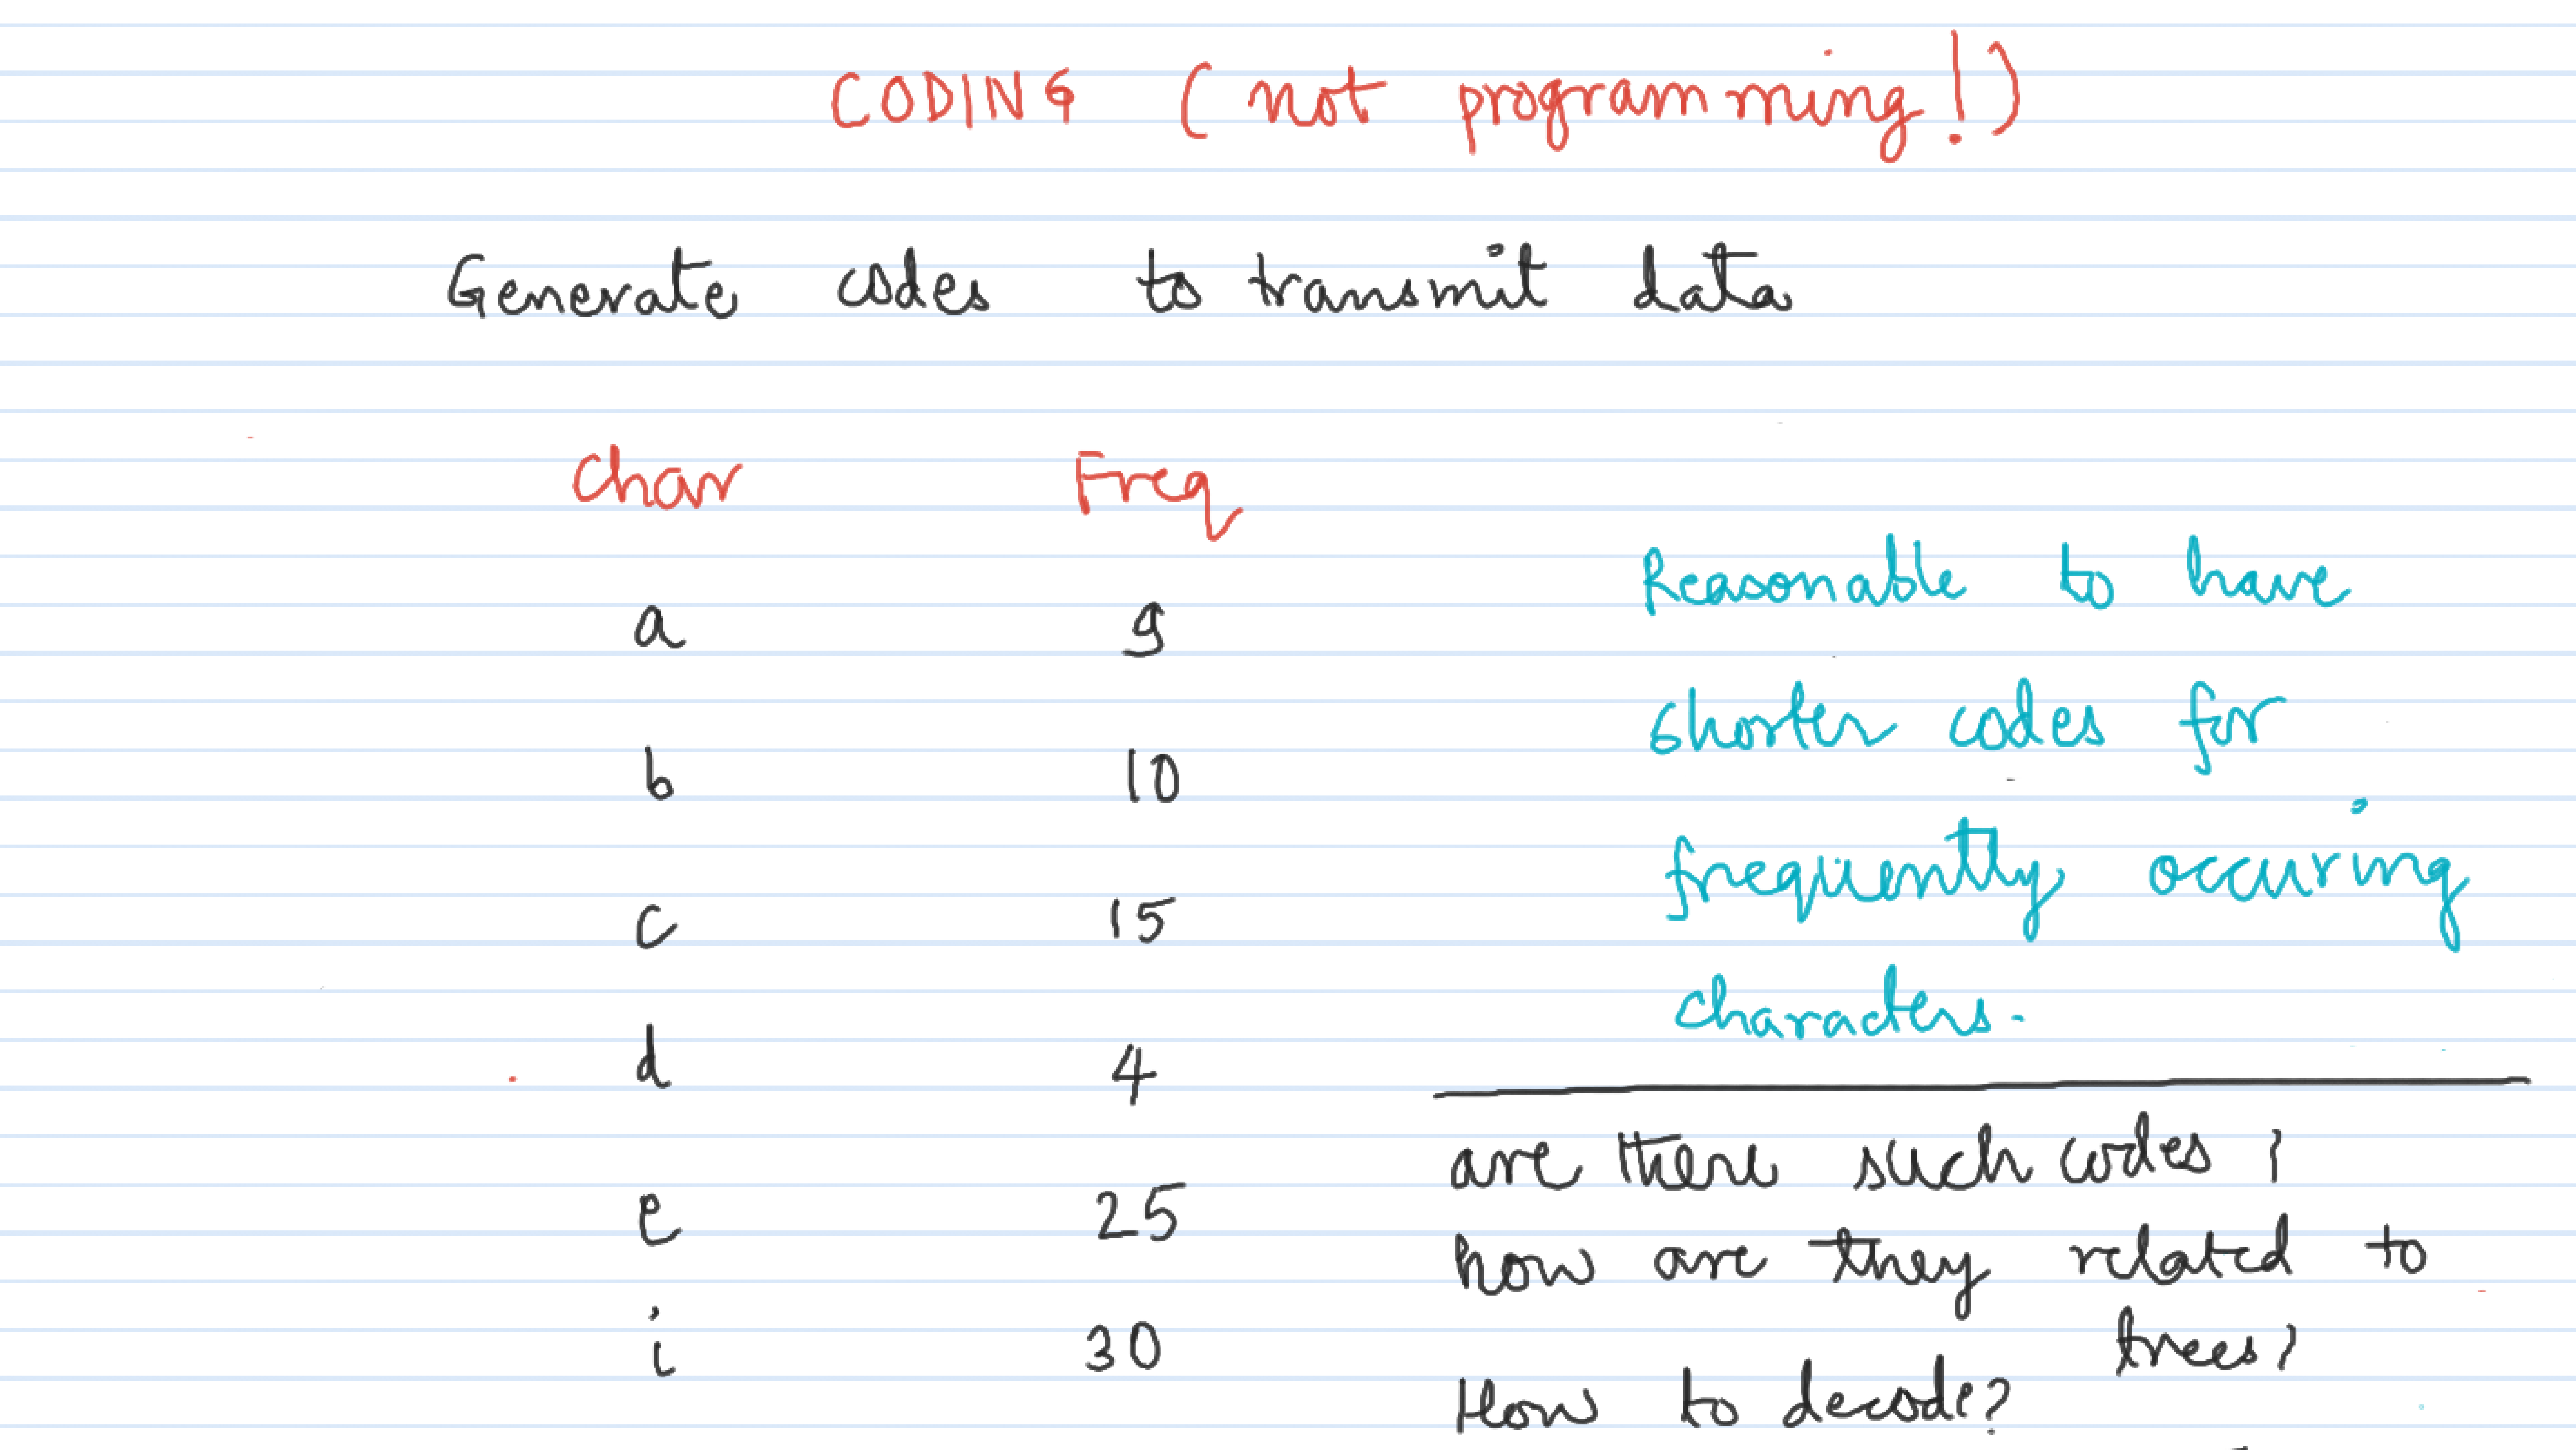 CODING (not programming!)
Generate codes to transmit data
Char Freq
a 9
b 10
c 15
d 4
e 25
i 30
Reasonable to have
shorter codes for
frequently occuring
characters.
are there such codes?
how are they related to
trees?
How to decode?